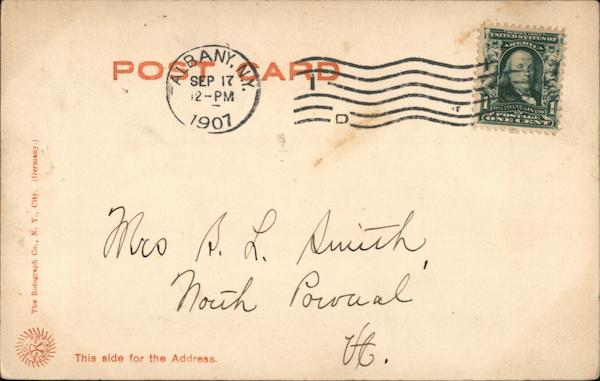 POST CARD
ALBANY, N.Y.
SEP 17
12-PM
1907
1
D
UNITED STATES OF
AMERICA
1 1
POSTAGE
ONE CENT
Mrs B. L. Smith,
North Pownal
Vt.
The Rotograph Co., N. Y., City. (Germany.)
This side for the Address.